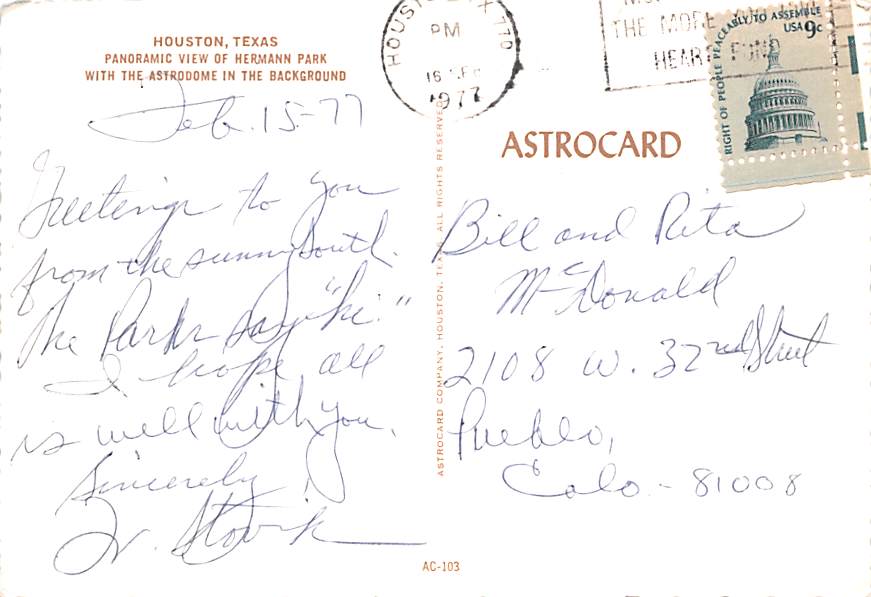 HOUSTON, TEXAS
PANORAMIC VIEW OF HERMANN PARK
WITH THE ASTRODOME IN THE BACKGROUND
Feb. 15-77
Greetings to you
from the sunny South.
The Parks say "hi."
I hope all
is well with you.
Sincerely,
HOUSTON, TX 770
PM
1977
THE MORE
HEART FUND
RIGHT OF PEOPLE PEACEABLY TO ASSEMBLE
USA 9c
ASTROCARD
Bill and Rita
McDonald
2108 W. 32nd Street
Pueblo,
Colo - 81008
ASTROCARD COMPANY, HOUSTON, TEXAS, ALL RIGHTS RESERVED
AC-103